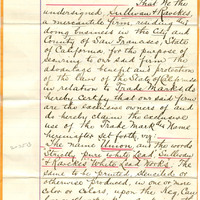 That We the
undersigned, Sullivan & Ravekes,
a mercantile firm residing &
doing business in the City and
County of San Francisco, State
of California, for the purpose of
securing to our said firm the
advantage benefit and protection
of the laws of the State of California
in relation to Trade Marks do
hereby certify that our said firm
are the exclusive owners of and
do hereby claim the exclusive
use of the Trade Mark or Name
hereinafter set forth, viz:
The name Union, and the words
Strictly pure white Lead, Sullivan
& Ravekes White Lead Works. The
same to be printed, stenciled or
otherwise produced, in one or more
colors, upon the Keg, Can